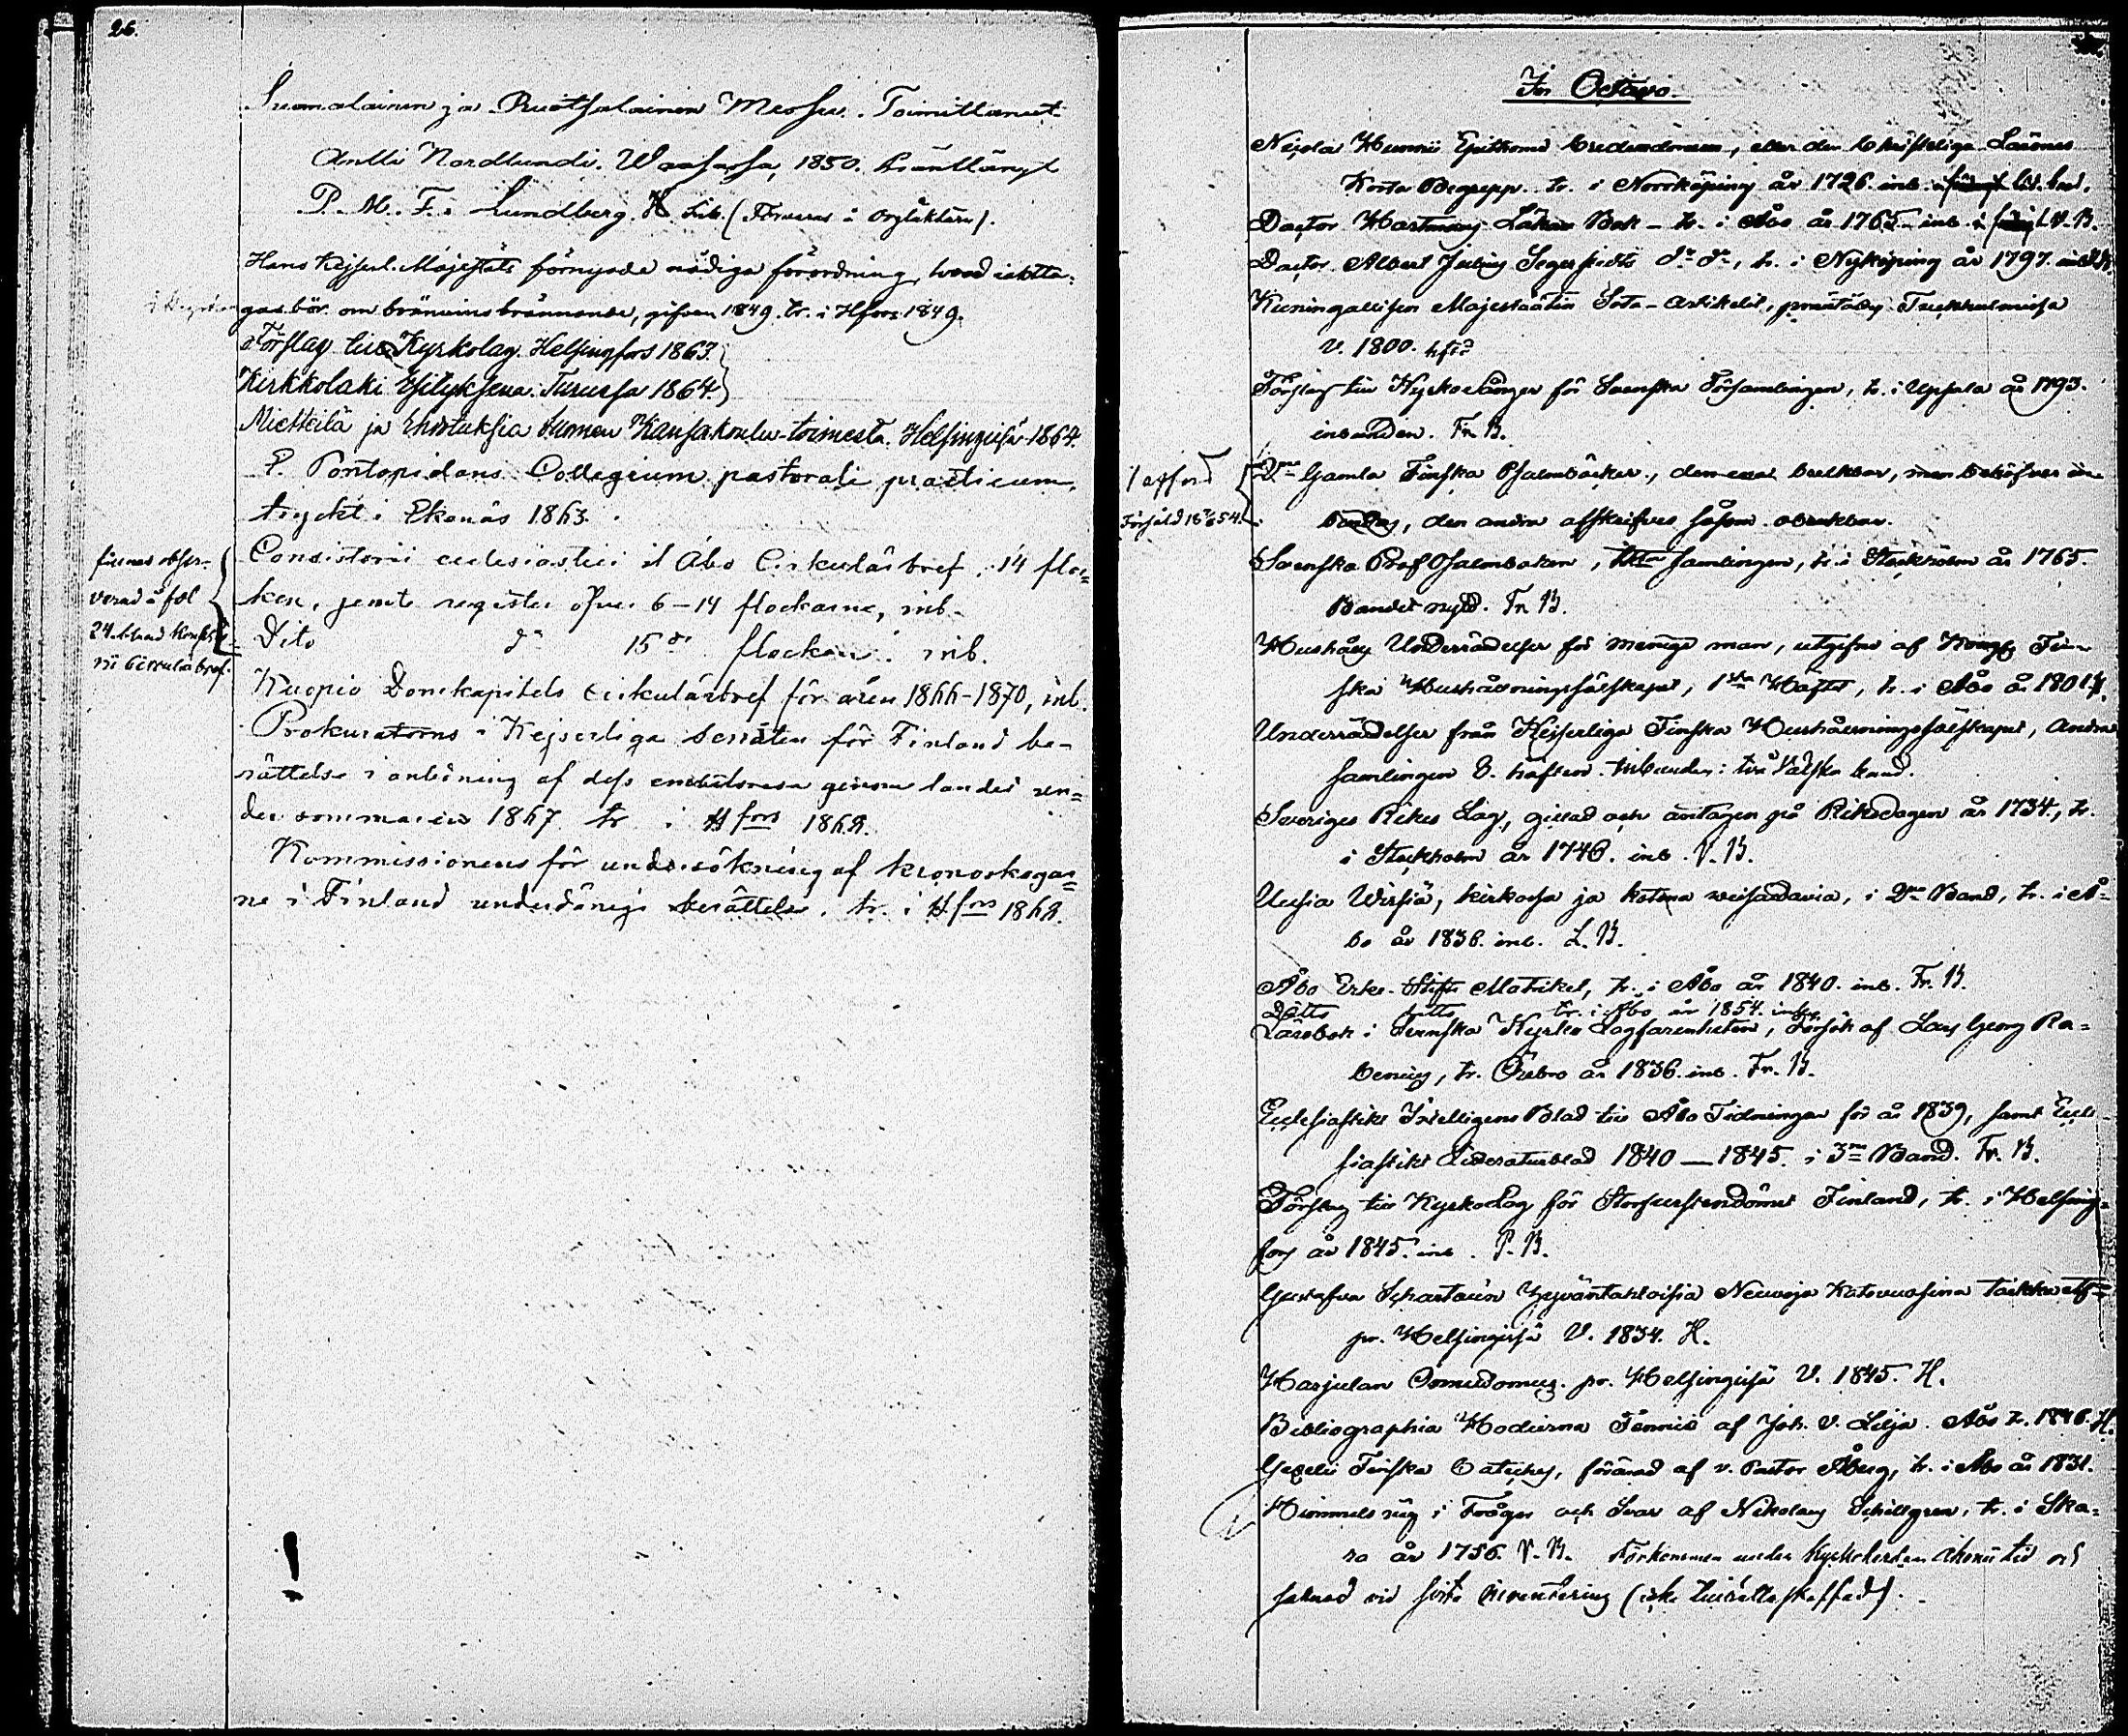 26.
Suomalainen ja Ruotsalainen Messu. Toimittanut
Antti Nordlundi. Waasassa, 1850. Pränttängt
P. M. F. Lundberg. (Förvaras å orgläktarn).
Hans Kejserl. Majestäts förnyade nådiga förordning, hvad iaktta-
gas bör om bränvinsbrännande, gifven 1849. tr. i Hfors 1849.
Förslag till Kyrkolag. Helsingfors 1863.
Kirkkolaki Esityksenä. Turussa 1864.
Mietteitä ja Ehdotuksia Suomen Kansakoulu-toimesta. Helsingissä 1864.
E. Pontopidans Collegium pastorale practicum,
tryckt i Ekenäs 1863.
finnas obser-
verad å fol
24. bland Consisto-
rii Cirkulärbref.
Consistorii ecclesiastici i Åbo Cirkulärbref, 14 floc=
ken, jemte register öfver 6-14 flockarne, inb.
Dito do 15de flocken. inb.
Kuopio Domkapitels cirkulärbref för åren 1866-1870, inb.
Prokuratorns i Kejserliga Senaten för Finland be-
rättelse i anledning af dess embetsresa genom landet un=
der sommaren 1867 tr. i Hfors 1868.
Kommissionens för undersökning af kronoskogar=
ne i Finland underdåniga berättelse. tr. i Hfors 1868.
In Octavo.
Nicolai Hunnii Epitome Credendorum, eller den Christeliga Lärones
Korta Begrepp. tr. i Norrköping år 1726. inb.
Doctor Hartmans Läkare Bok - tr. i Åbo år 1765. inb. V. B.
Doctor Albert Julius Segerstedts do do, tr. i Nyköping år 1797.
Kuningallisen Majestäätin Sota-Artikelit, präntätty Tukhulmissa
V. 1800. hft.
Förslag till Kyrko Sånger för Svenska Församlingen, tr. i Uppsala år 1793.
inbunden. Fr. B.
1 afförd
Försåld
2ne Gamla Finska Psalmböcker, den ena brukbar, men behöfver in-
bindas, den andra afskrifves såsom obrukbar.
Svenska Prof Psalmboken, samlingen, tr. i Stockholm år 1765.
Bandet nytt. Fr. B.
Hushålls Underrädelser för menige man, utgifne af Kongl. Fin-
ska Hushållningssälskapet, 1sta Häftet, tr. i Åbo år 1801.
Underrädelser från Kejserliga Finska Hushållningssälskapet, Andra
samlingen 8. häften. Inbunden i två Valska band.
Sveriges Rikes Lag, gillad och antagen på Riksdagen år 1734, tr.
i Stockholm år 1746. inb. V. B.
Uusia Wirsiä, kirkossa ja kotona veisattavia, i 2ne Band, tr. i Å-
bo år 1836. inb. L. B.
Åbo Erke-Stifts Matrikel, tr. i Åbo år 1840. inb. Fr. B.
Ditto ditto tr. i Åbo år 1854. inb.
Lärobok i Svenska Kyrko Lagfarenheten, Försök af Lars Georg Ra=
benius, tr. Örebro år 1836. inb. Fr. B.
Ecclesiastikt Intelligens Blad till Åbo Tidningar för år 1839, samt Eccle-
siastikt Litteraturblad 1840 — 1845. i 3ne Band. Fr. B.
Förslag till Kyrko Lag för Storfurstendömet Finland, tr. i Helsing-
fors år 1845. inb. P. B.
Gustafva Schartauin Hyväntahtoisia Neuvoja Katovuosina
pr. Helsingissä V. 1834. H.
Harjulan pr. Helsingissä V. 1845. H.
Bibliographia Hodierna Fennica af Joh. V. Lilja. Åbo tr. 1846. H.
Gezelii Finska Cateches, förärad af v. Pastor Åberg, tr. i Åbo år 1831.
Himmels väg i Frågor och Svar af Nikolaus tr. i Ska=
ra år 1756. V. B. Förkommen under Kyrkoherden tid och
saknad vid sista inventering (icke tillrättaskaffad).